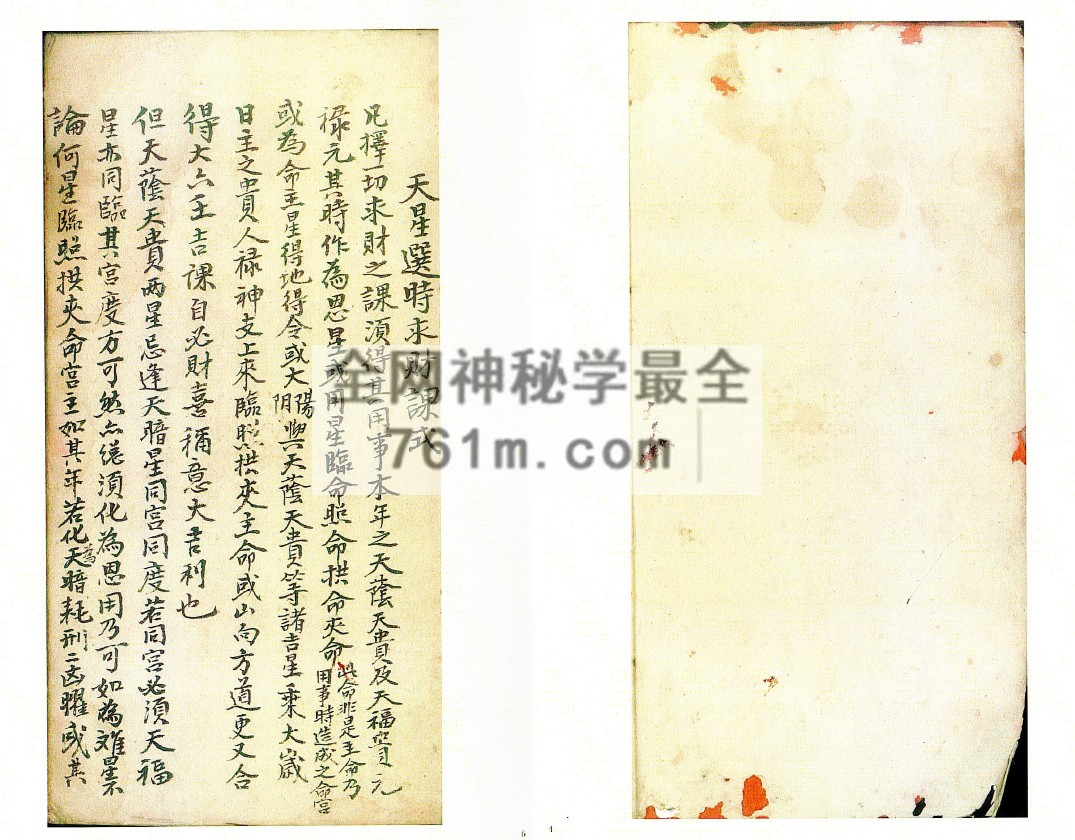 天星選時求財課式
凡擇一切求財之課須得其用事本年之天蔭天貴及天福官元
祿元其時作為恩星或用星臨命照命拱命夾命此命非是主命乃用事時造成之命宮
或為命主星得地得令或太陽太陰與天蔭天貴等諸吉星乘大歲
日主之貴人祿神支上來臨照拱夾主命或山向方道更又合
得大六壬吉課自必財喜稱意大吉利也
但天蔭天貴兩星忌逢天暗星同宮同度若同宮必須天福
星亦同臨其宮度方可然亦總須化為恩用乃可如為难星不
論何星臨照拱夾命宮主如其年若化為天暗耗刑二凶曜或其
全网神秘学最全
761m.com
6 4